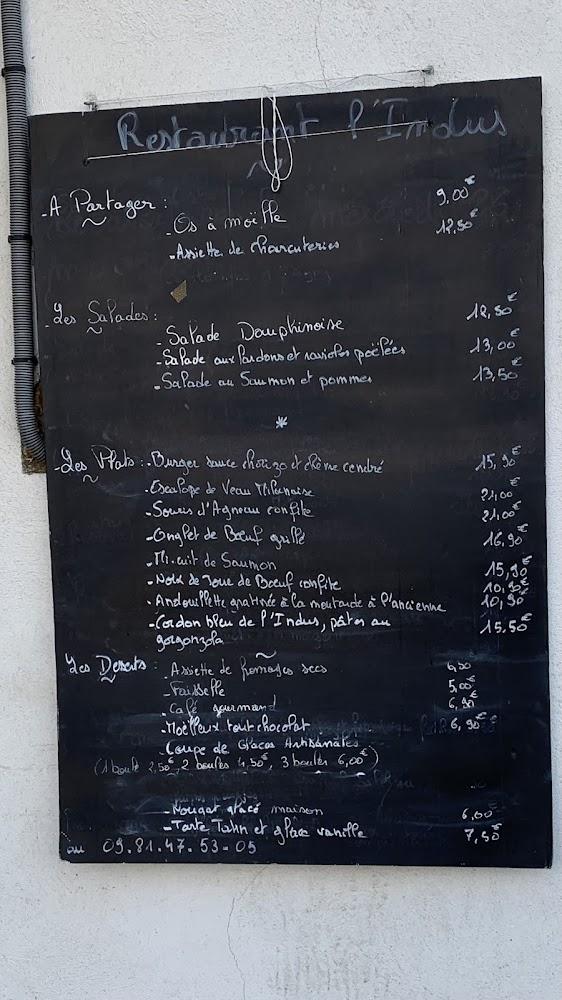 Restaurant l'Indus
- A Partager :
- Os à moëlle 9,00€
- Assiette de charcuteries 12,50€
- Les Salades :
- Salade Dauphinoise 12,50€
- Salade aux lardons et ravioles poëlées 13,00€
- Salade au Saumon et pommes 13,50€
*
- Les Plats : - Burger sauce chorizo et chèvre cendré 15,90€
- Escalope de Veau Milanaise 21,00€
- Souris d'Agneau confite 21,00€
- Onglet de Bœuf grillé 16,90€
- Mi-cuit de Saumon 15,90€
- Noix de Joue de Bœuf confite 10,90€
- Andouillette gratinée à la moutarde à l'ancienne 10,90€
- Cordon bleu de l'Indus, pâtes au 15,50€
gorgonzola
Les Desserts : - Assiette de fromages secs 6,50
- Faisselle 5,00€
- Café gourmand 6,90
- Moëlleux tout chocolat 6,90€
- Coupe de Glaces Artisanales
(1 boule 2,50€, 2 boules 4,50€, 3 boules 6,00€)
- Nougat glacé maison 6,00€
- Tarte Tatin et glace vanille 7,50€
au 09.81.47.53-05